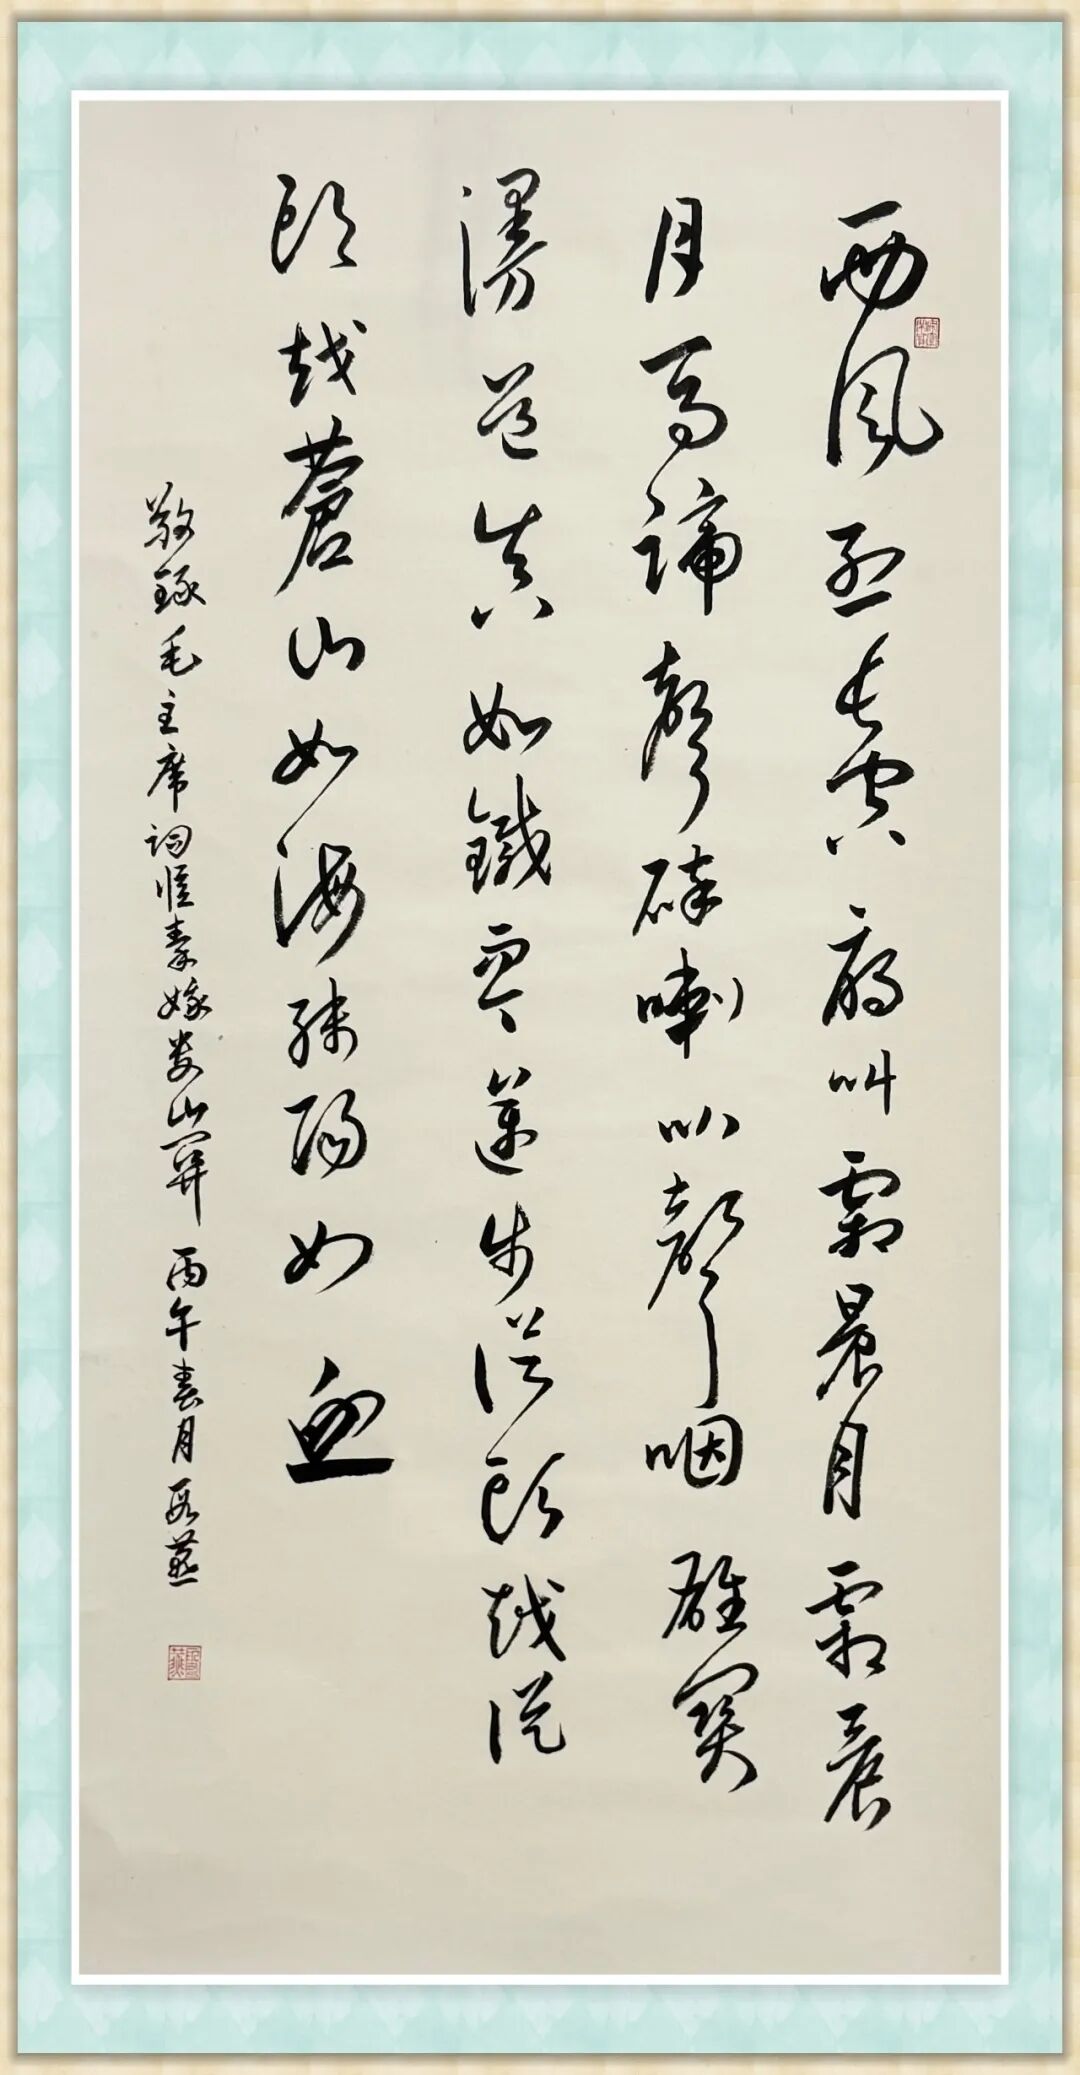 西風烈長空雁叫霜晨月霜晨
月馬蹄聲碎喇叭聲咽雄關
漫道真如鐵而今邁步從頭越從
頭越蒼山如海殘陽如血
敬錄毛主席詞憶秦娥婁山關 丙午春月 段燕